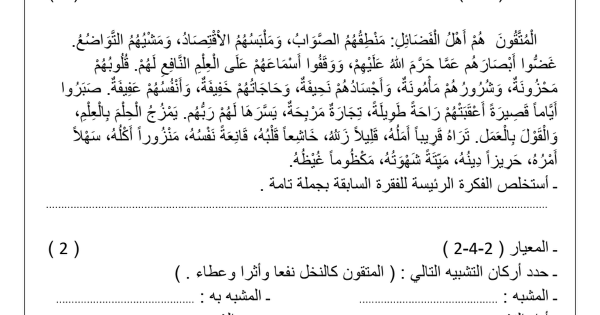 الْمُتَّقُونَ هُمْ أَهْلُ الْفَضَائِلِ: مَنْطِقُهُمُ الصَّوَابُ، وَمَلْبَسُهُمُ الأقْتِصَادُ، وَمَشْيُهُمُ التَّوَاضُعُ.
غَضُّوا أَبْصَارَهُم عَمَّا حَرَّمَ اللهُ عَلَيْهِمْ، وَوَقَفُوا أَسْمَاعَهُمْ عَلَى الْعِلْمِ النَّافِعِ لَهُمْ. قُلُوبُهُمْ
مَحْزُونَةٌ، وَشُرُورُهُمْ مَأْمُونَةٌ، وَأَجْسَادُهُمْ نَحِيفَةٌ، وَحَاجَاتُهُمْ خَفِيفَةٌ، وَأَنْفُسُهُمْ عَفِيفَةٌ. صَبَرُوا
أَيَّاماً قَصِيرَةً أَعْقَبَتْهُمْ رَاحَةً طَوِيلَةً، تِجَارَةٌ مَرْبِحَةٌ، يَسَّرَهَا لَهُمْ رَبُّهُم. يَمْزُجُ الْحِلْمَ بِالْعِلْمِ،
وَالْقَوْلَ بِالْعَمَلِ. تَرَاهُ قَرِيباً أَمَلُهُ، قَلِيلاً زَلَلهُ، خَاشِعاً قَلْبُهُ، قَانِعَةً نَفْسُهُ، مَنْزُوراً أَكْلُهُ، سَهْلاً
أَمْرُهُ، حَرِيزاً دِينُهُ، مَيِّتَةً شَهْوَتُهُ، مَكْظُوماً غَيْظُهُ.
ـ أستخلص الفكرة الرئيسة للفقرة السابقة بجملة تامة .
ـ المعيار ( 2-4-2 ) ( 2 )
ـ حدد أركان التشبيه التالي : ( المتقون كالنخل نفعا وأثرا وعطاء . )
ـ المشبه : ............................ ـ المشبه به : ............................